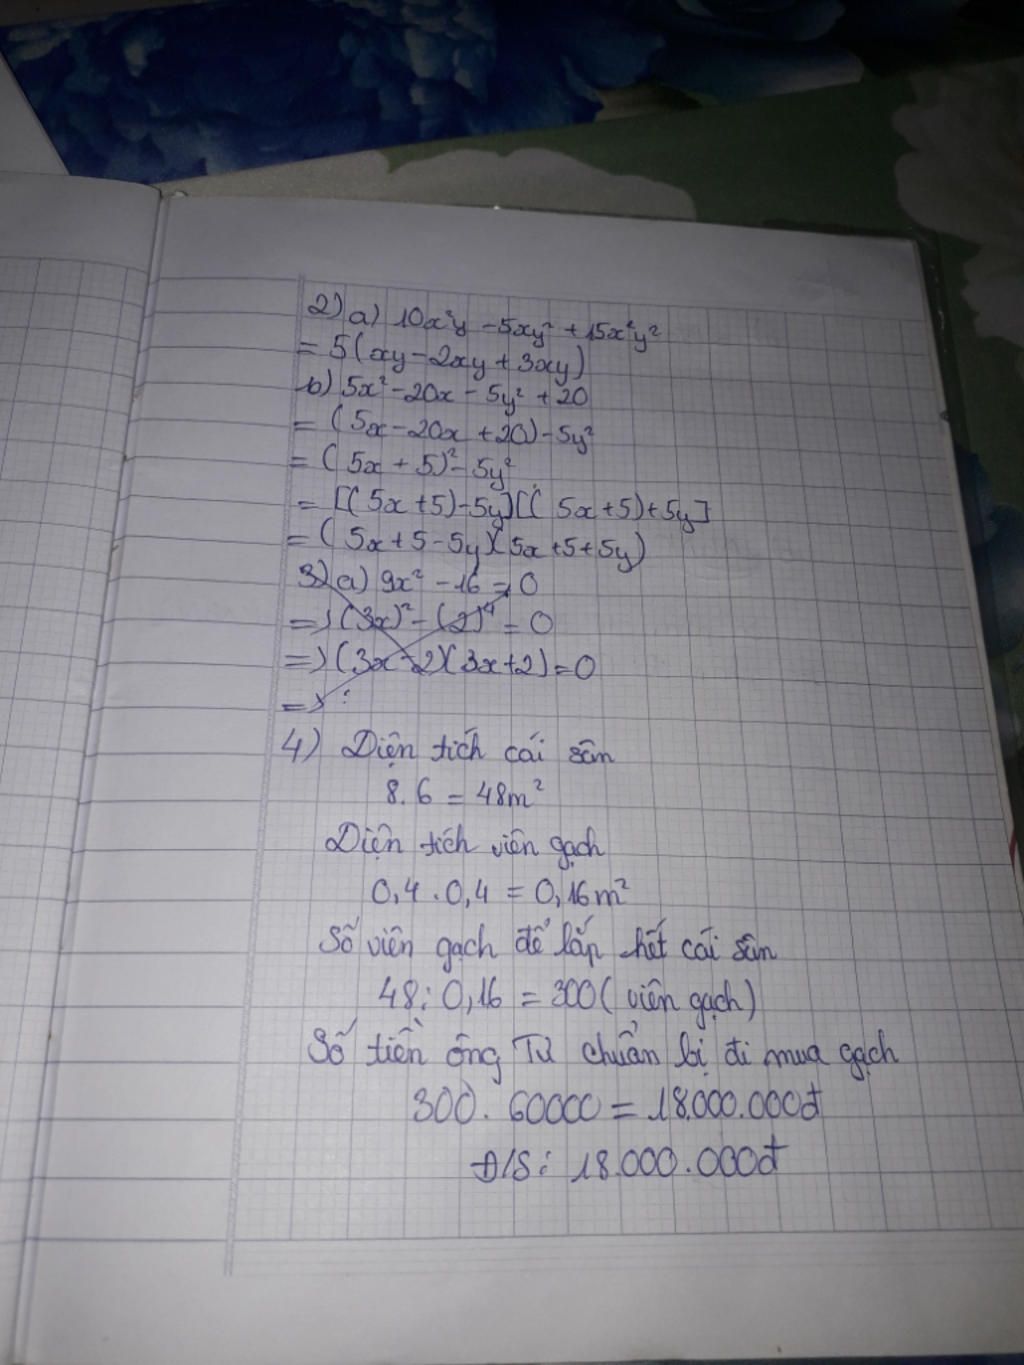 2) a) 10x²y - 5xy² + 15x²y²
= 5(xy - 2xy + 3xy)
b) 5x² - 20x - 5y² + 20
= (5x - 20x + 20) - 5y²
= (5x + 5)² - 5y²
= [(5x + 5) - 5y][(5x + 5) + 5y]
= (5x + 5 - 5y)(5x + 5 + 5y)
3) a) 9x² - 16 = 0
=> (3x)² - (2)⁴ = 0
=> (3x - 2)(3x + 2) = 0
=>
4) Diện tích cái sân
8.6 = 48m²
Diện tích viên gạch
0,4 . 0,4 = 0,16m²
Số viên gạch để lắp hết cái sân
48 : 0,16 = 300 (viên gạch)
Số tiền ông Tư chuẩn bị đi mua gạch
300. 60000 = 18.000.000đ
Đ/S : 18.000.000đ